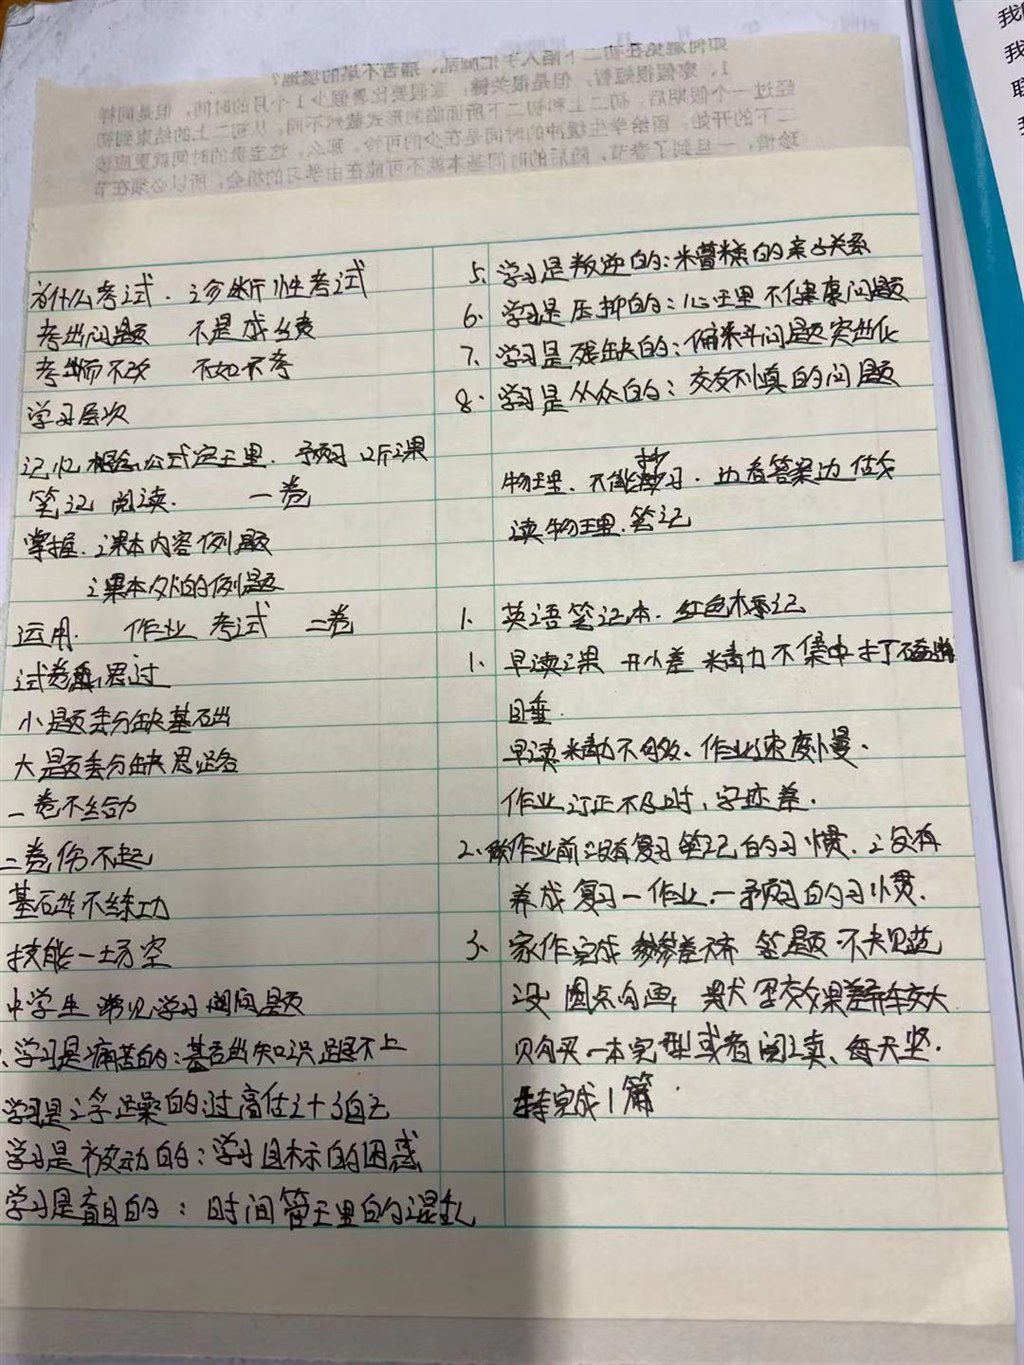 为什么考试. 诊断性考试
考出问题 不是成绩
考而不改 不如不考
学习层次
记忆 概念,公式定理. 予习 听课
笔记 阅读. 一卷
掌握. 课本内容例题
课本外的例题
运用. 作业 考试 二卷
试卷 思过
小题丢分缺基础
大题丢分缺思路
一卷不给力
二卷伤不起
基础不练功
技能一场空
中学生 常见学习 问题
学习是痛苦的:基础知识跟不上
学习是浮躁的:过高估计了自己
学习是被动的:学习目标的困惑
学习是盲目的:时间管理的混乱
5. 学习是叛逆的:糟糕的亲子关系
6. 学习是压抑的:心理不健康问题
7. 学习是残缺的:偏科问题突出化
8. 学习是从众的:交友不慎的问题
物理. 不能抄习. 边看答案边做
读物理.笔记
1. 英语笔记本. 红色标记
1. 早读课 开小差 精力不集中 打瞌
睡.
早读精力不 作业速度慢.
作业订正不及时,字迹差.
2. 做作业前没有复习笔记的习惯. 没有
养成复习-作业.-予习的习惯.
3. 家作完成参差不齐 答题 不规范
没圈点勾画, 效果差
购买一本完型或者阅读、每天坚.
持完成1篇.